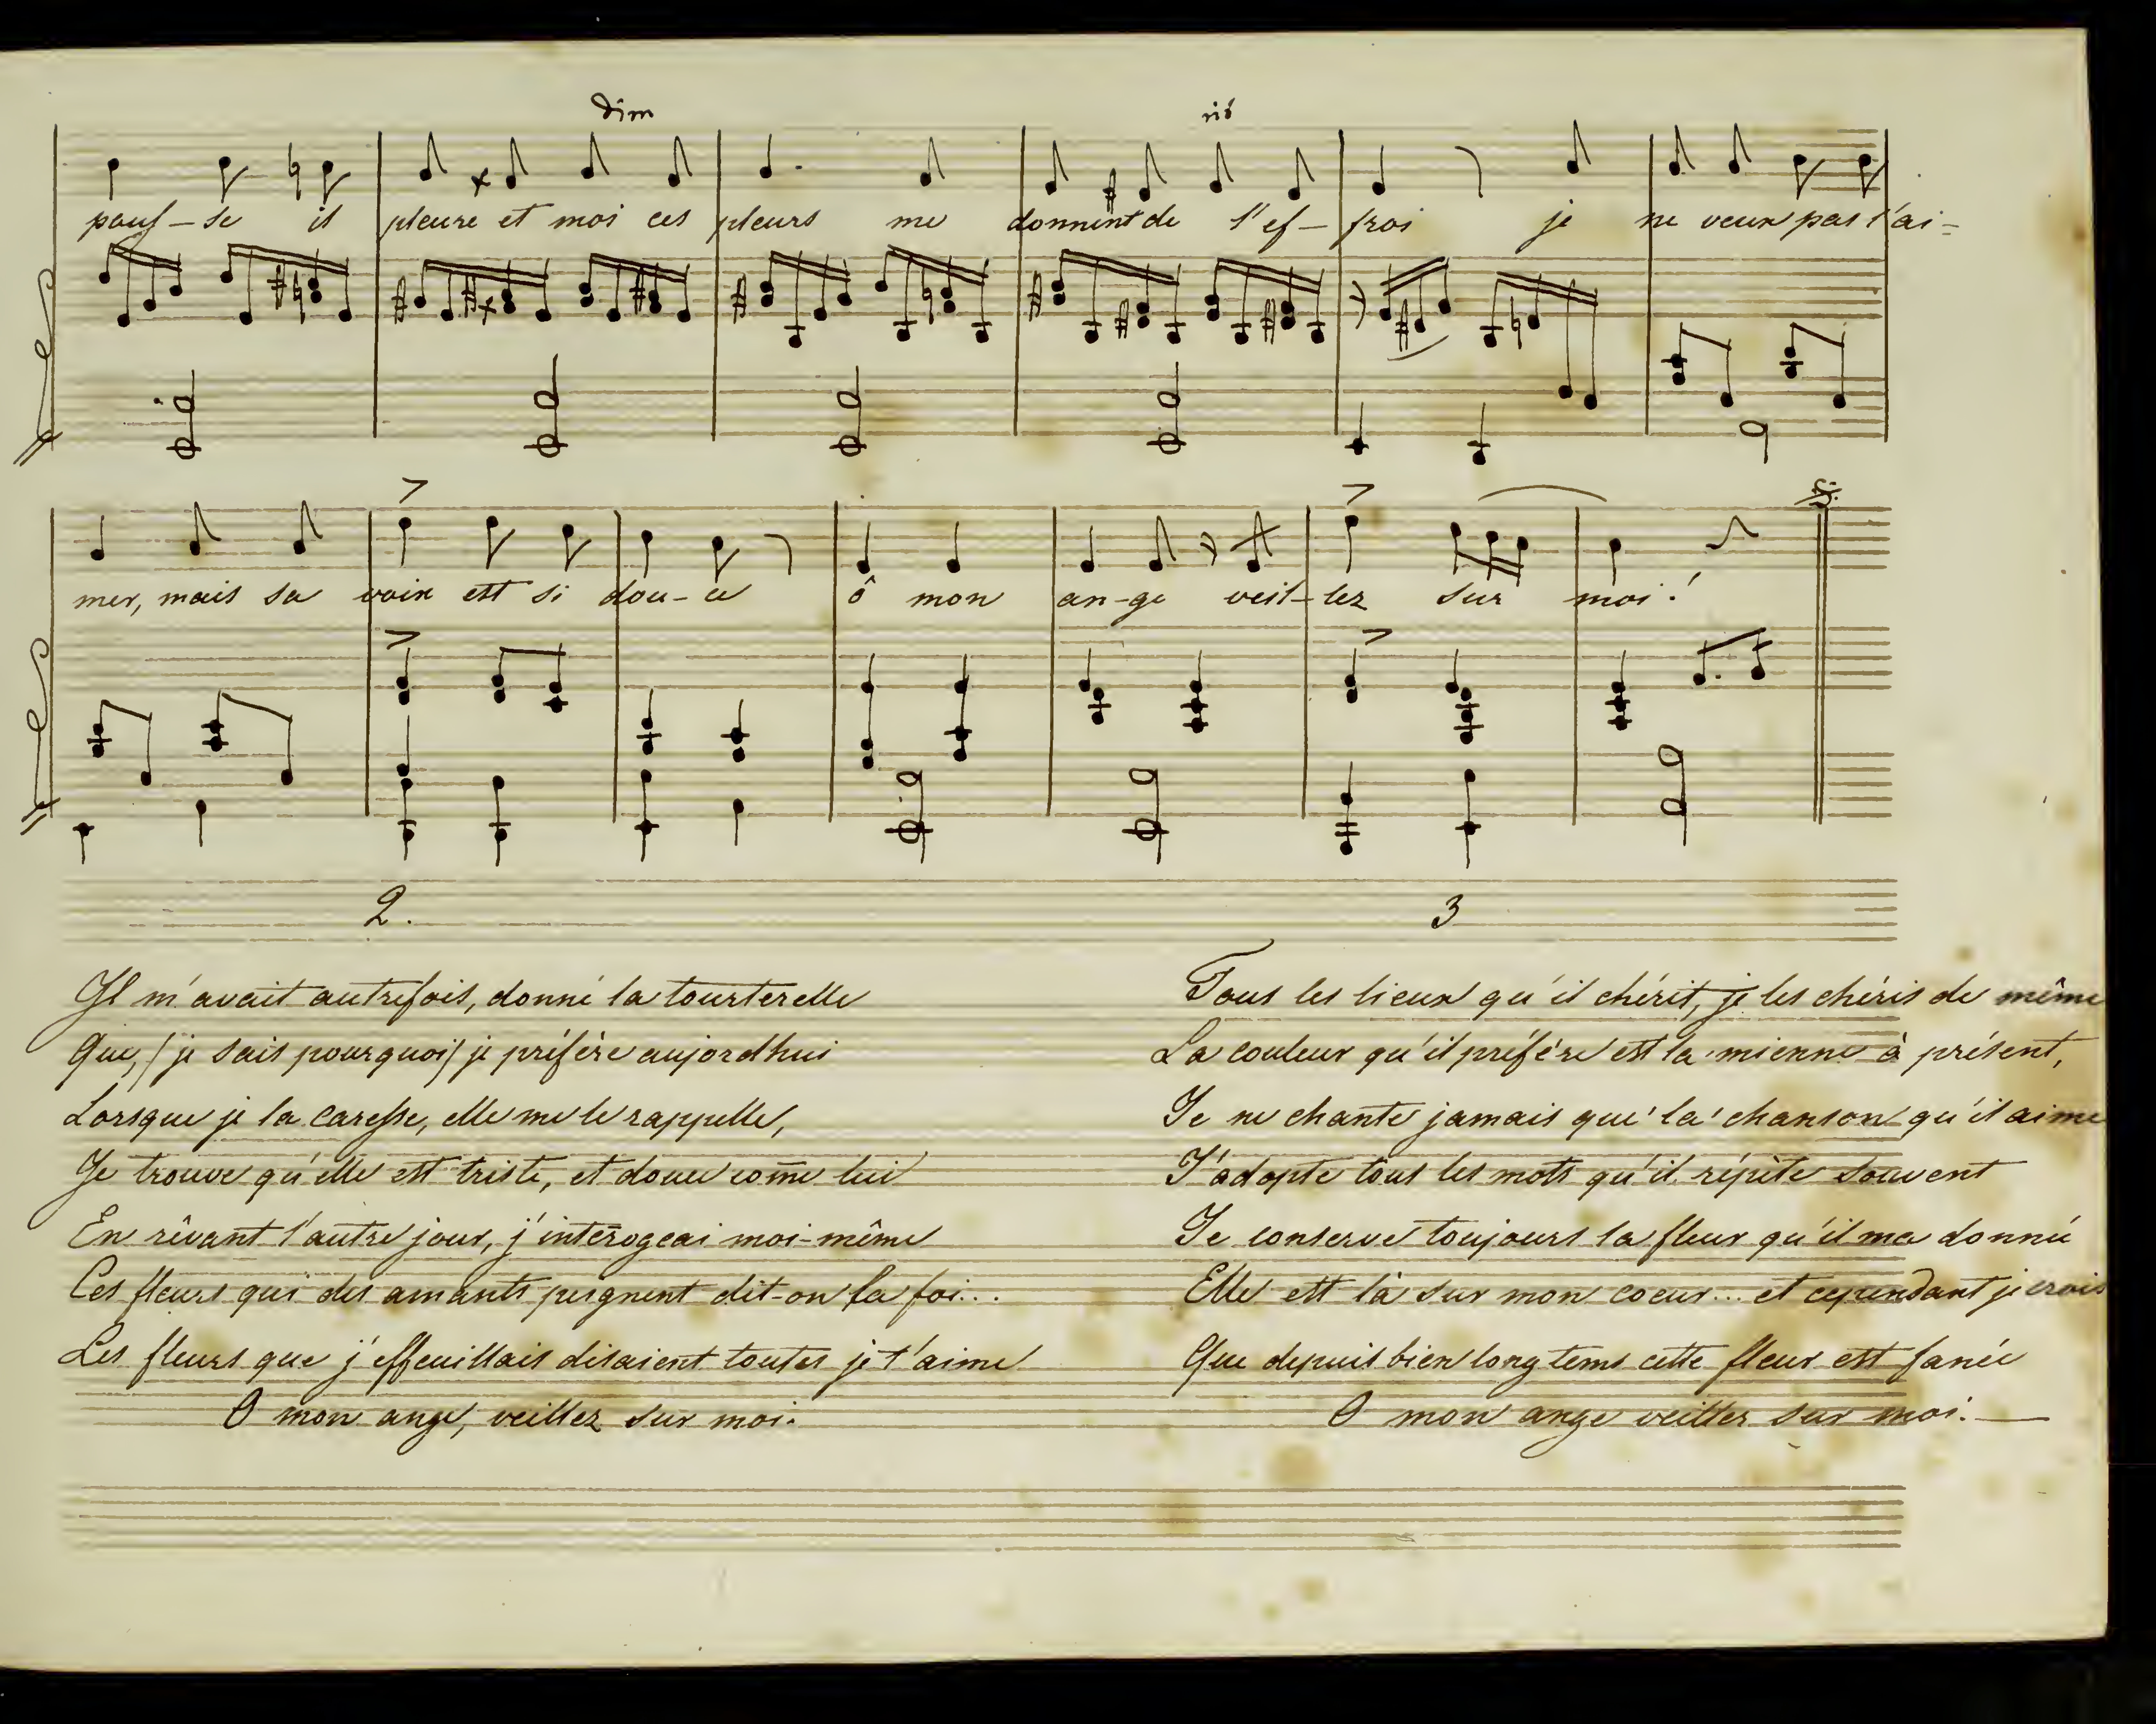 dim rit
pous-se il pleure et moi ces pleurs me donnent de l'ef-froi je ne veux pas l'ai=
mer, mais sa voix est si dou-ce ô mon an-ge veil-lez sur moi!
2.
Il m'avait autrefois, donné la tourterelle
Que, (je sais pourquoi) je préfère aujordhui
Lorsque je la caresse, elle me le rappelle,
Je trouve qu'elle est triste, et douce com̄e lui
En rêvant l'autre jour, j'inter̄ogeai moi-même
Ces fleurs qui des amants peignent dit-on la foi...
Les fleurs que j'effeuillais disaient toutes je t'aime
O mon ange, veillez sur moi.
3
Tous les lieux qu'il chérit, je les chéris de même
La couleur qu'il préfère est la mienne à présent,
Je ne chante jamais que la chanson qu'il aime
J'adopte tous les mots qu'il répète souvent
Je conserve toujours la fleur qu'il ma donnée
Elle est là sur mon coeur... et cependant je crois
Que depuis bien longtems cette fleur est fanée
O mon ange veillez sur moi.